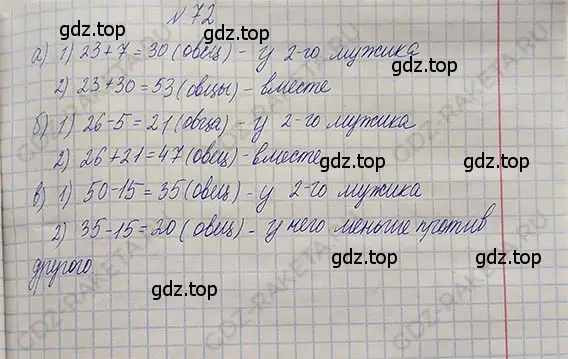 N 72
а) 1) 23+7=30 (овец) - у 2-го мужика
2) 23+30=53 (овцы) - вместе
б) 1) 26-5=21 (овца) - у 2-го мужика
2) 26+21=47 (овец) - вместе
в) 1) 50-15=35 (овец) - у 2-го мужика
2) 35-15=20 (овец) - у него меньше против
другого
gdz.top gdz.top
gdz.top gdz.top
gdz.top gdz.top
gdz.top gdz.top
GDZ-RAKETA.RU